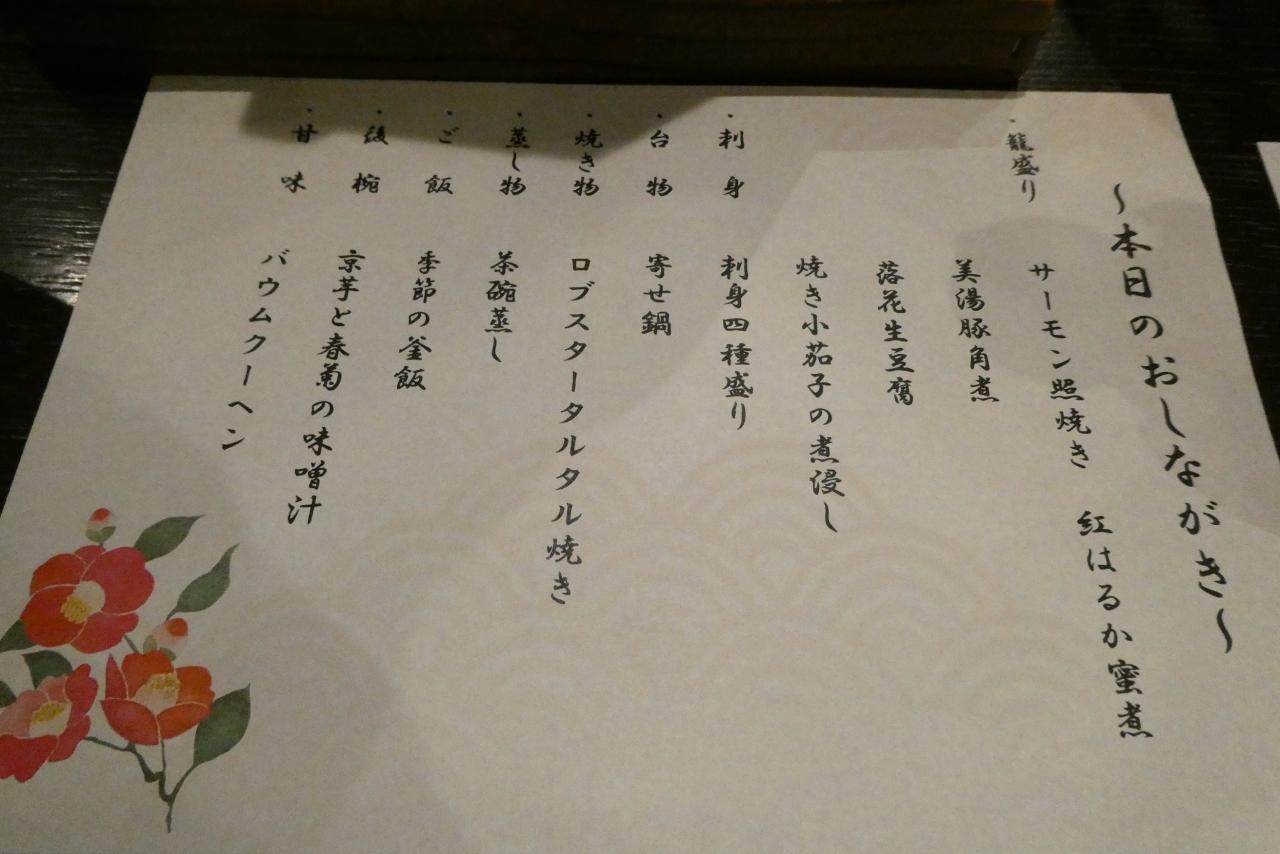 ～本日のおしながき～
・籠盛り サーモン照焼き 紅はるか蜜煮
美湯豚角煮
落花生豆腐
焼き小茄子の煮浸し
・刺身 刺身四種盛り
・台物 寄せ鍋
・焼き物 ロブスタータルタル焼き
・蒸し物 茶碗蒸し
・ご飯 季節の釜飯
・後椀 京芋と春菊の味噌汁
・甘味 バウムクーヘン